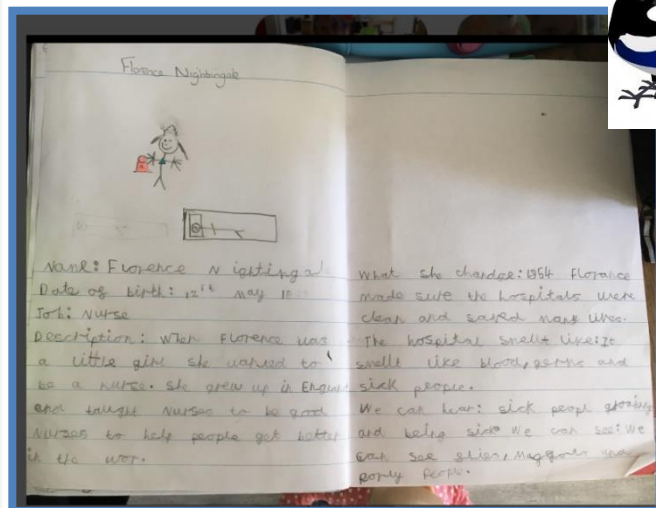 Florence Nightingale
Name: Florence Nighting
Date of birth: 12th May
Job: Nurse
Description: When Florence was
a little girl she wanted to
be a nurse. She grew up in England
and taught nurses to be good
nurses to help people get better
in the wor.
What she chandee: 1954 Florance
made sure the hospitals were
clean and saved many lives.
The hospital smellt like: It
smellt like blood, germs and
sick people.
We can hear: sick peopl
and being sick We can see: We
can see , maggots and
porly people.